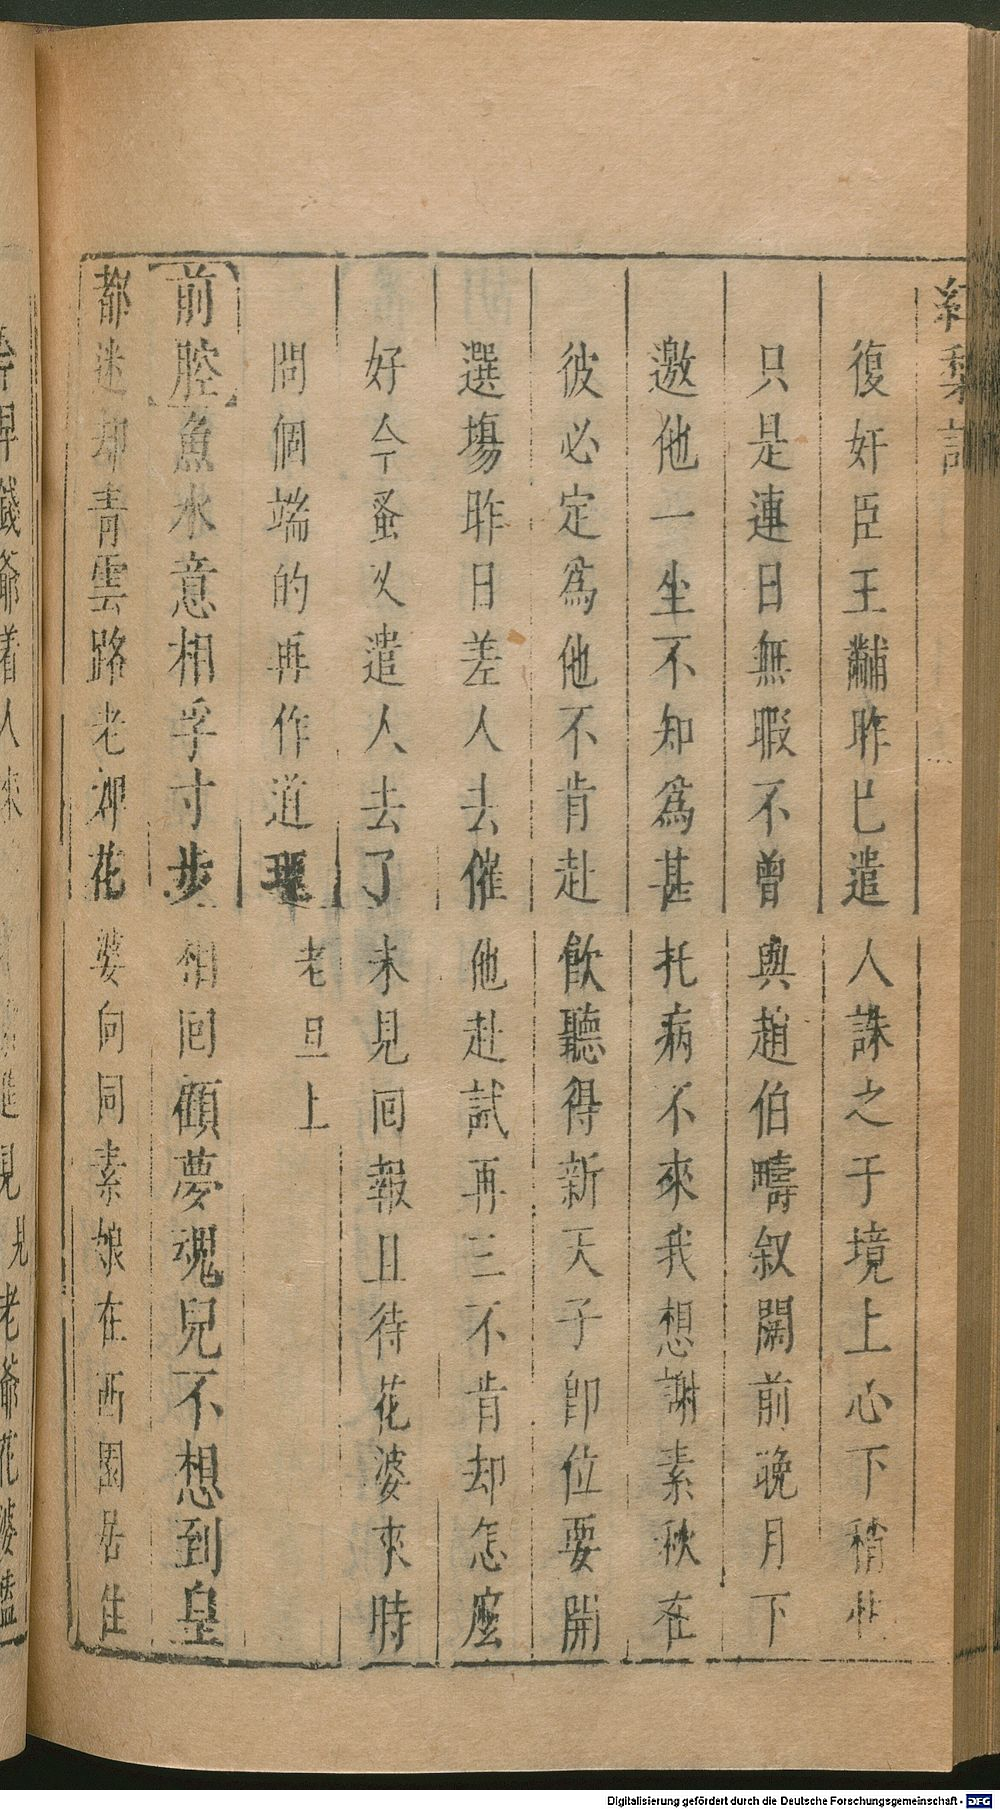 紅梨記
復奸臣王黼昨已遣人誅之于境上心下稍
只是連日無暇不曾與趙伯疇叙闊前晚月下
邀他一坐不知為甚托病不來我想謝素秋在
彼必定為他不肯赴飲聽得新天子即位要開
選場昨日差人去催他赴試再三不肯却怎麼
好今蚤又遣人去了未見回報且待花婆來時
問個端的再作道理老旦上
前腔魚水意相孚寸步相回顧夢魂兒不想到皇
都迷却青雲路老身花婆向同素娘在西園居住
錢爺着人來 見 老爺花婆
Digitalisierung gefördert durch die Deutsche Forschungsgemeinschaft - DFG